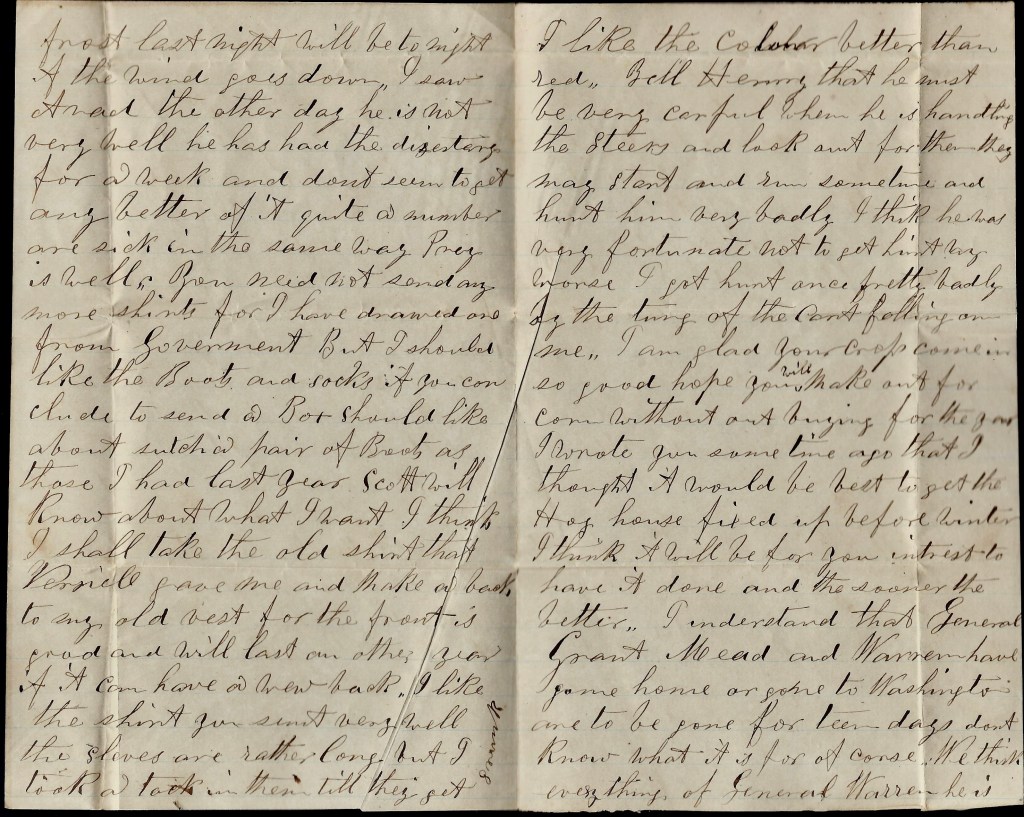 frost last night will be to night
if the wind goes down,, I saw
the other day he is not
very well he has had the
for a week and dont seem to get
any better of it quite a number
are sick in the same way Prey
is well,, You need not send any
more shirts for I have drawed one
from Goverment But I should
like the Boots and socks if you con
clude to send a Box should like
about sutch a pair of Boots as
those I had last year Scott will
Know about what I want I think
I shall take the old shirt that
gave me and make a back
to my old vest for the front is
good and will last an other year
if it can have a new back,, I like
the shirt you sent very well
the sleves are rather long but I
took a tock in them till they get
shrunk
I like the colour better than
red,, Tell Henry that he must
be very carful when he is handling
the Steers and look out for them they
may start and run sometime and
hurt him very badly I thik he was
very fortunate not to get hurt any
worse I got hurt once pretty badly
by the tung of the Cart falling on
me,, I am glad your crop come in
so good hope you will make out for
corn without out buying for the year
I wrote you some time ago that I
thought it would be best to get the
Hog house fixed up before winter
I think it will be for you intrest to
have it done and the sooner the
better,, I understand that General
Grant Mead and Warren have
gone home or gone to Washington
are to be gone for teen days dont
Know what it is for of corse,, We think
everything of General Warren he is